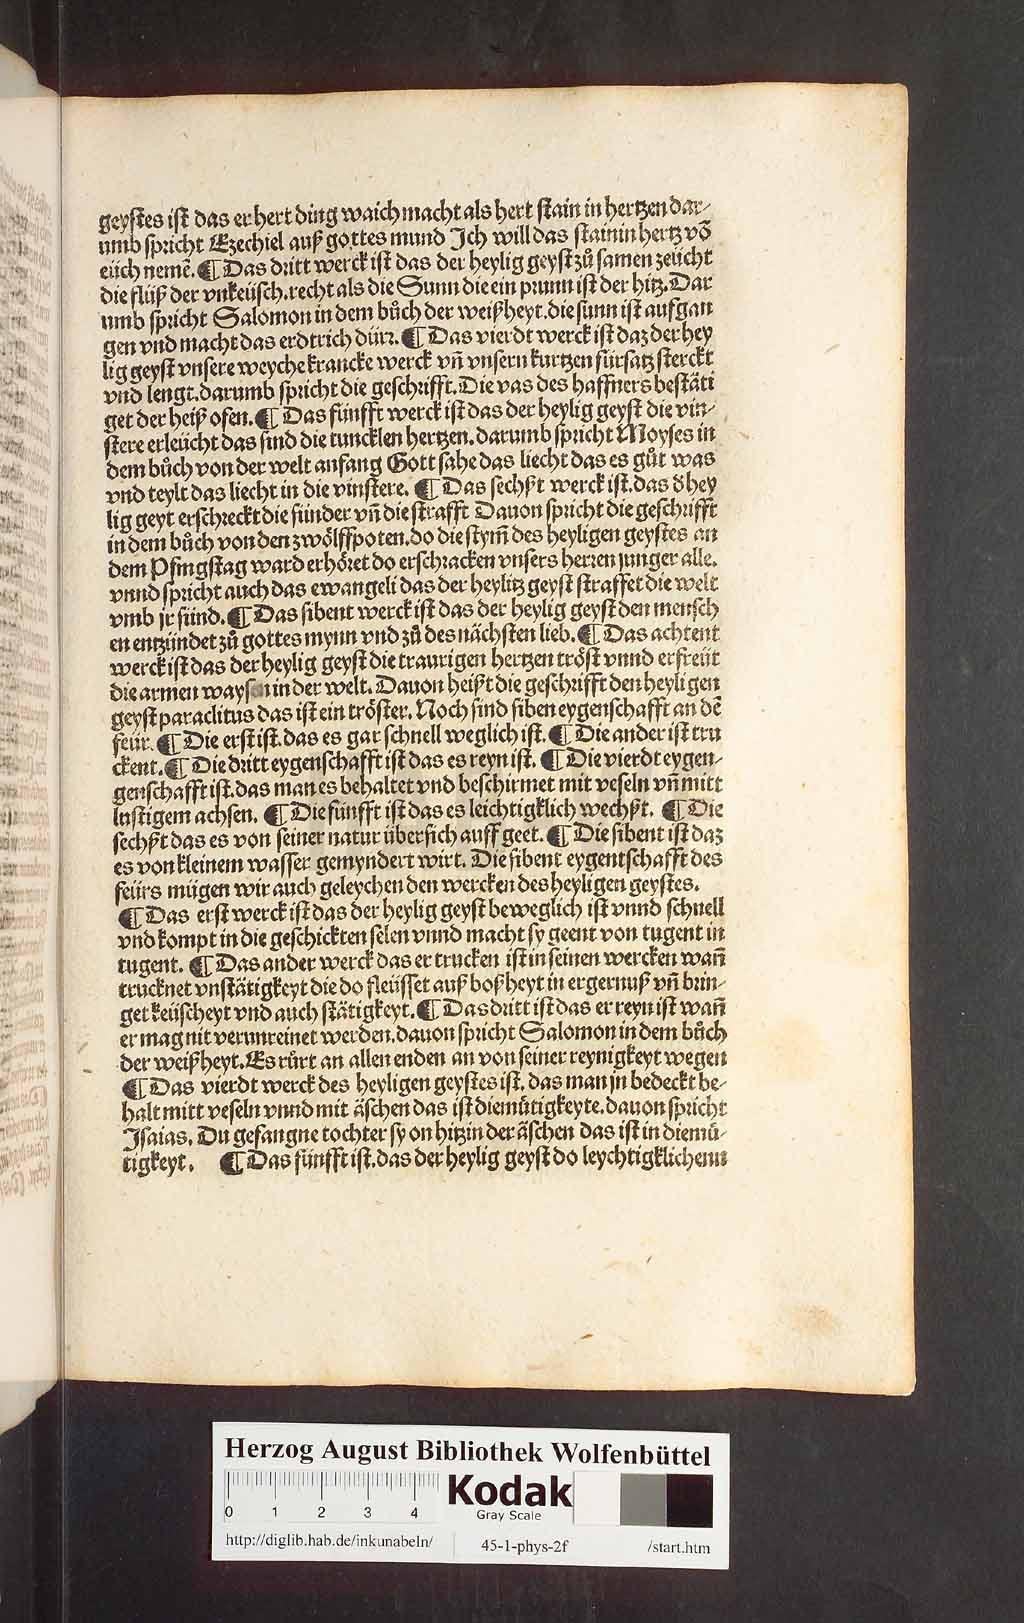 geystes ist das er hert ding waich macht als hert stain in hertzen dar-
umb spricht Ezechiel auß gottes mund Ich will das stainin hertz võ
eüch nemē. ¶ Das dritt werck ist das der heylig geyst zů samen zeücht
die flüß der vnkeüsch. recht als die Sunn die ein prunn ist der hitz. Dar
umb spricht Salomon in dem bůch der weißheyt. die sunn ist aufgan
gen vnd macht das erdtrich dürꝛ. ¶ Das vierdt werck ist daz der hey
lig geyst vnsere weyche krancke werck vñ vnsern kurtzen fürsatz sterckt
vnd lengt. darumb spricht die geschrifft. Die vas des haffners bestäti
get der heiß ofen. ¶ Das fünfft werck ist das der heylig geyst die vin-
stere erleücht das sind die tuncklen hertzen. darumb spricht Moyses in
dem bůch von der welt anfang Gott sahe das liecht das es gůt was
vnd teylt das liecht in die vinstere. ¶ Das sechßt werck ist. das d̕ hey
lig geyt erschreckt die sünder vñ die strafft Dauon spricht die geschrifft
in dem bůch von den zwölffpoten. do die stym̄ des heyligen geystes an
dem Pfingstag ward erhöret do erschracken vnsers herren junger alle.
vnnd spricht auch das ewangeli das der heylitz geyst straffet die welt
vmb jr sünd. ¶ Das sibent werck ist das der heylig geyst den mensch
en entzündet zů gottes mynn vnd zů des nächsten lieb. ¶ Das achtent
werck ist das der heylig geyst die traurigen hertzen tröst vnnd erfreüt
die armen waysen in der welt. Dauon heißt die geschrifft den heyligen
geyst paraclitus das ist ein tröster. Noch sind siben eygenschafft an dē
feür. ¶ Die erst ist. das es gar schnell weglich ist. ¶ Die ander ist tru
ckent. ¶ Die dritt eygenschafft ist das es reyn ist. ¶ Die vierdt eygen-
genschafft ist. das man es behaltet vnd beschirmet mit veseln vñ mitt
lustigem achsen. ¶ Die fünfft ist das es leichtigklich wechßt. ¶ Die
sechßt das es von seiner natur übersich auff geet. ¶ Die sibent ist daz
es von kleinem wasser gemyndert wirt. Die sibent eygentschafft des
feürs mügen wir auch geleychen den wercken des heyligen geystes.
¶ Das erst werck ist das der heylig geyst beweglich ist vnnd schnell
vnd kompt in die geschickten selen vnnd macht sy geent von tugent in
tugent. ¶ Das ander werck das er trucken ist in seinen wercken wañ
trucknet vnstätigkeyt die do fleüsset auß boßheyt in ergernuß vñ brin-
get keüscheyt vnd auch stätigkeyt. ¶ Das dritt ist das er reyn ist wañ
er mag nit verunreinet werden. dauon spricht Salomon in dem bůch
der weißheyt. Es růrt an allen enden an von seiner reynigkeyt wegen
¶ Das vierdt werck des heyligen geystes ist. das man jn bedeckt be-
halt mitt veseln vnnd mit äschen das ist diemütigkeyte. dauon spricht
Isaias. Du gefangne tochter sy on hitz in der äschen das ist in diemü-
tigkeyt. ¶ Das fünfft ist. das der heylig geyst do leychtigklichenn
Herzog August Bibliothek Wolfenbüttel
0 1 2 3 4
Kodak
Gray Scale
http://diglib.hab.de/inkunabeln/ 45-1-phys-2f /start.htm